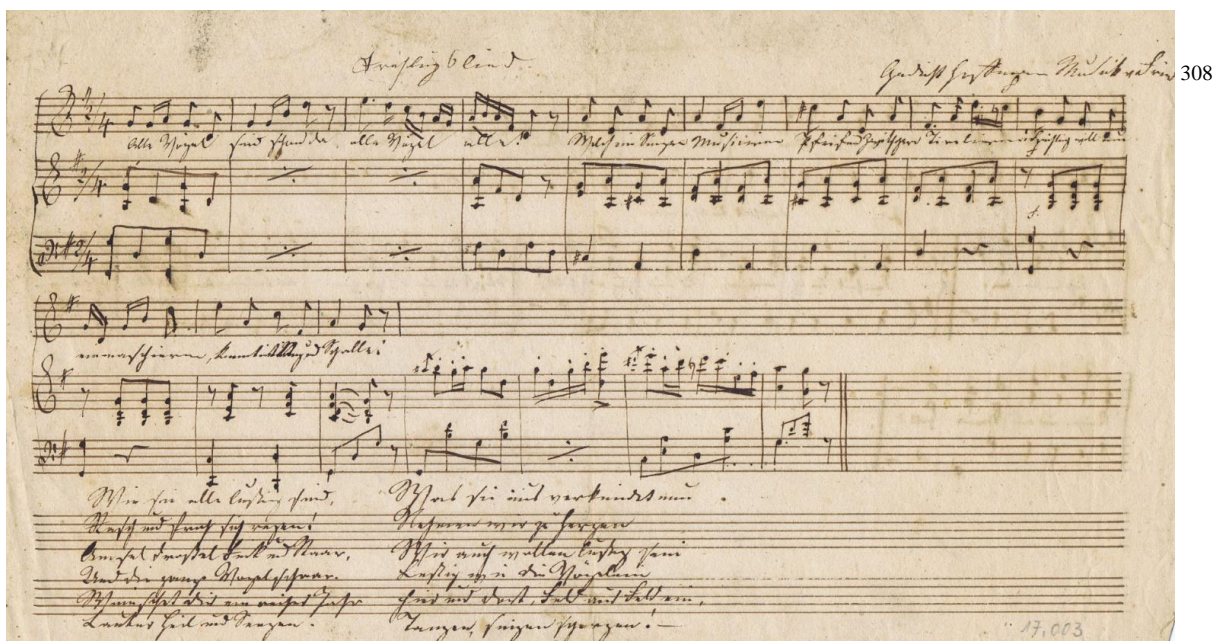 Frühlingslied.
Gedicht Hoffmann Musik
308
2/4 Alle Vögel sind schon da alle Vögel alle! Welch ein Singen Musiciren Pfeifen Zwitschern Tireliren Frühling will nun
2/4
2/4
einmarschieren, kommt mit Sang und Schalle!
Wie sie alle lustig sind,
Rasch und froh sich regen!
Amsel Drossel Fink und Staar,
Und die ganze Vogelschar.
Wünschet dir ein reiches Jahr
Lauter Heil und Seegen.
Was sie uns verkündet nun
Nehmen wir zu Herzen
Wir auch wollen lustig sein
Lustig wie die Vögelein
Hier und dort, Feld aus Feld ein,
Tanzen, singen scherzen! —
17,003